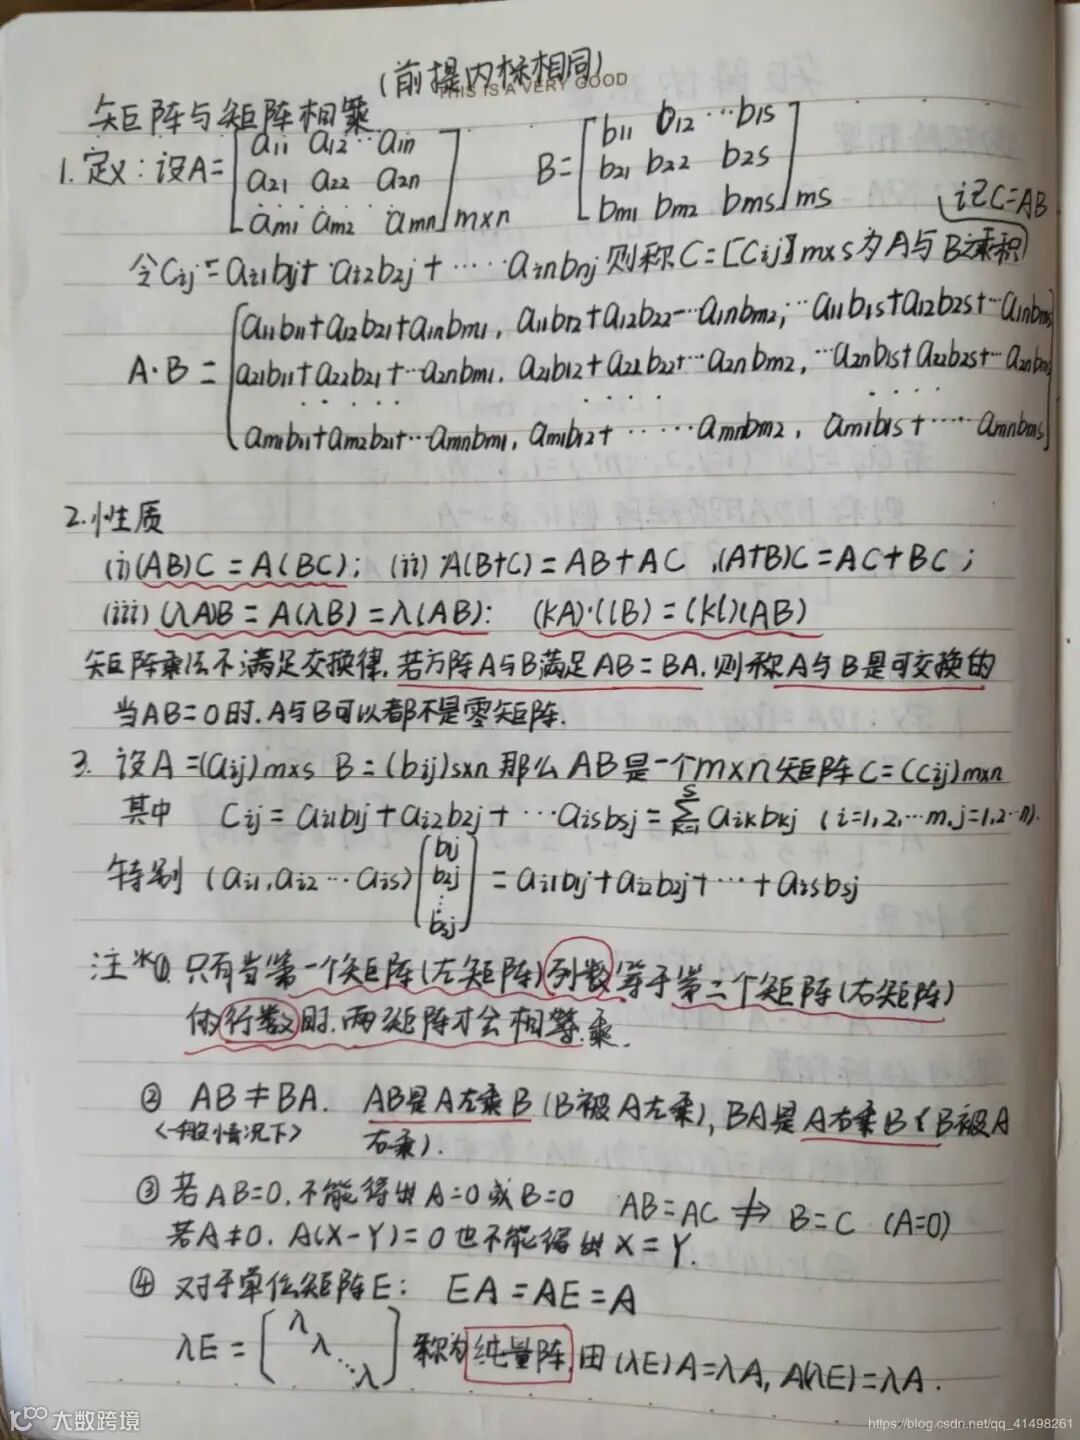 (前提内标相同)
THIS IS A VERY GOOD
矩阵与矩阵相乘
1. 定义: 设A= [a11 a12 … a1n
a21 a22 a2n
am1 am2 amn] m×n
B= [b11 b12 … b1s
b21 b22 b2s
bm1 bm2 bms] ms
记C=AB
令Cij = ai1b1j + ai2b2j + …… ainbnj 则称C=[Cij]m×s为A与B乘积
A·B = [a11b11+a12b21+a1nbm1, a11b12+a12b22…a1nbm2, … a11b1s+a12b2s+…a1nbms
a21b11+a22b21+…a2nbm1, a21b12+a22b22+…a2nbm2, …a2nb1s+a22b2s+…a2nbms
· · · · · · · · · · · ·
am1b11+am2b21+…amnbm1, am1b12+ …… amnbm2, am1b1s+ …… amnbms]
2. 性质
(i) (AB)C = A(BC); (ii) A(B+C) = AB+AC , (A+B)C = AC+BC ;
(iii) (λA)B = A(λB) = λ(AB): (kA)·(lB) = (kl)(AB)
矩阵乘法不满足交换律, 若方阵A与B满足AB=BA, 则称A与B是可交换的
当AB=0时, A与B可以都不是零矩阵.
3. 设A=(aij)m×s B=(bij)s×n 那么AB是一个m×n矩阵C=(Cij)m×n
其中 Cij = ai1b1j + ai2b2j + …aisbsj = ∑_{k=1}^{s} aikbkj (i=1,2,…m, j=1,2…n).
特别 (ai1, ai2 … ais) [b1j b2j ⋮ bsj] = ai1b1j + ai2b2j + … + aisbsj
注* ① 只有当第一个矩阵(左矩阵)列数等于第二个矩阵(右矩阵)
的行数时, 两矩阵才会相乘.
② AB≠BA. AB是A左乘B (B被A左乘), BA是A右乘B (B被A
<一般情况下> 右乘).
③ 若AB=0, 不能得出A=0或B=0 AB=AC ⇏ B=C (A=0)
若A≠0, A(X-Y)=0也不能得出X=Y.
④ 对于单位矩阵E: EA=AE=A
λE = [λ λ ⋱ λ] 称为纯量阵, 由(λE)A=λA, A(λE)=λA.
大数跨境
https://blog.csdn.net/qq_41498261